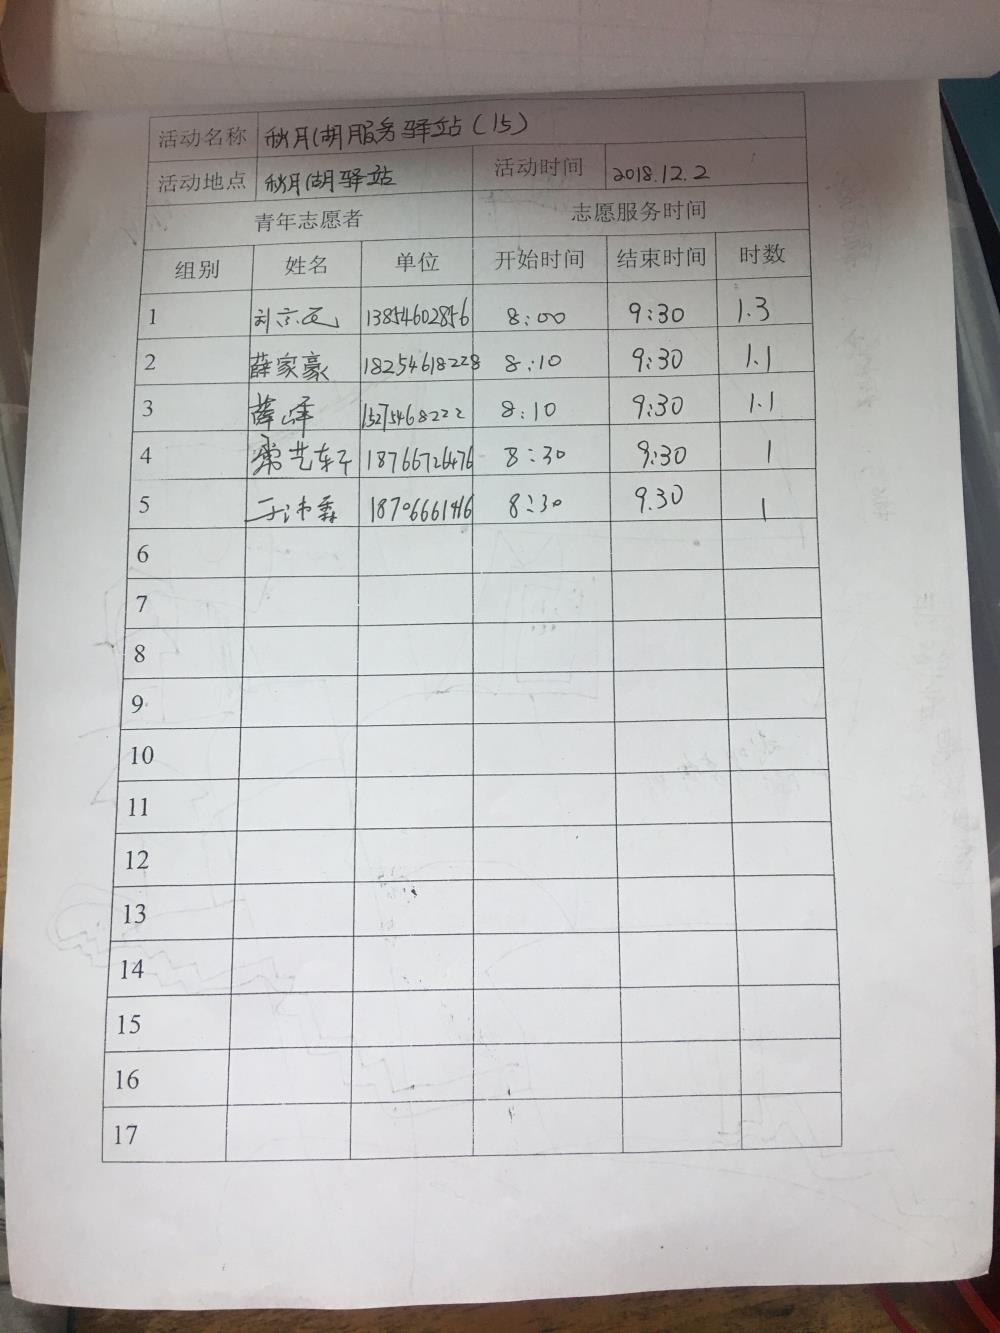 活动名称 秋月湖服务驿站(15)
活动地点 秋月湖驿站 活动时间 2018.12.2
青年志愿者 志愿服务时间
组别 姓名 单位 开始时间 结束时间 时数
1 刘京 13854602856 8:00 9:30 1.3
2 薛家豪 18254618228 8:10 9:30 1.1
3 薛峰 15275468222 8:10 9:30 1.1
4 18766726476 8:30 9:30 1
5 于沛霖 18706661416 8:30 9.30 1
6
7
8
9
10
11
12
13
14
15
16
17